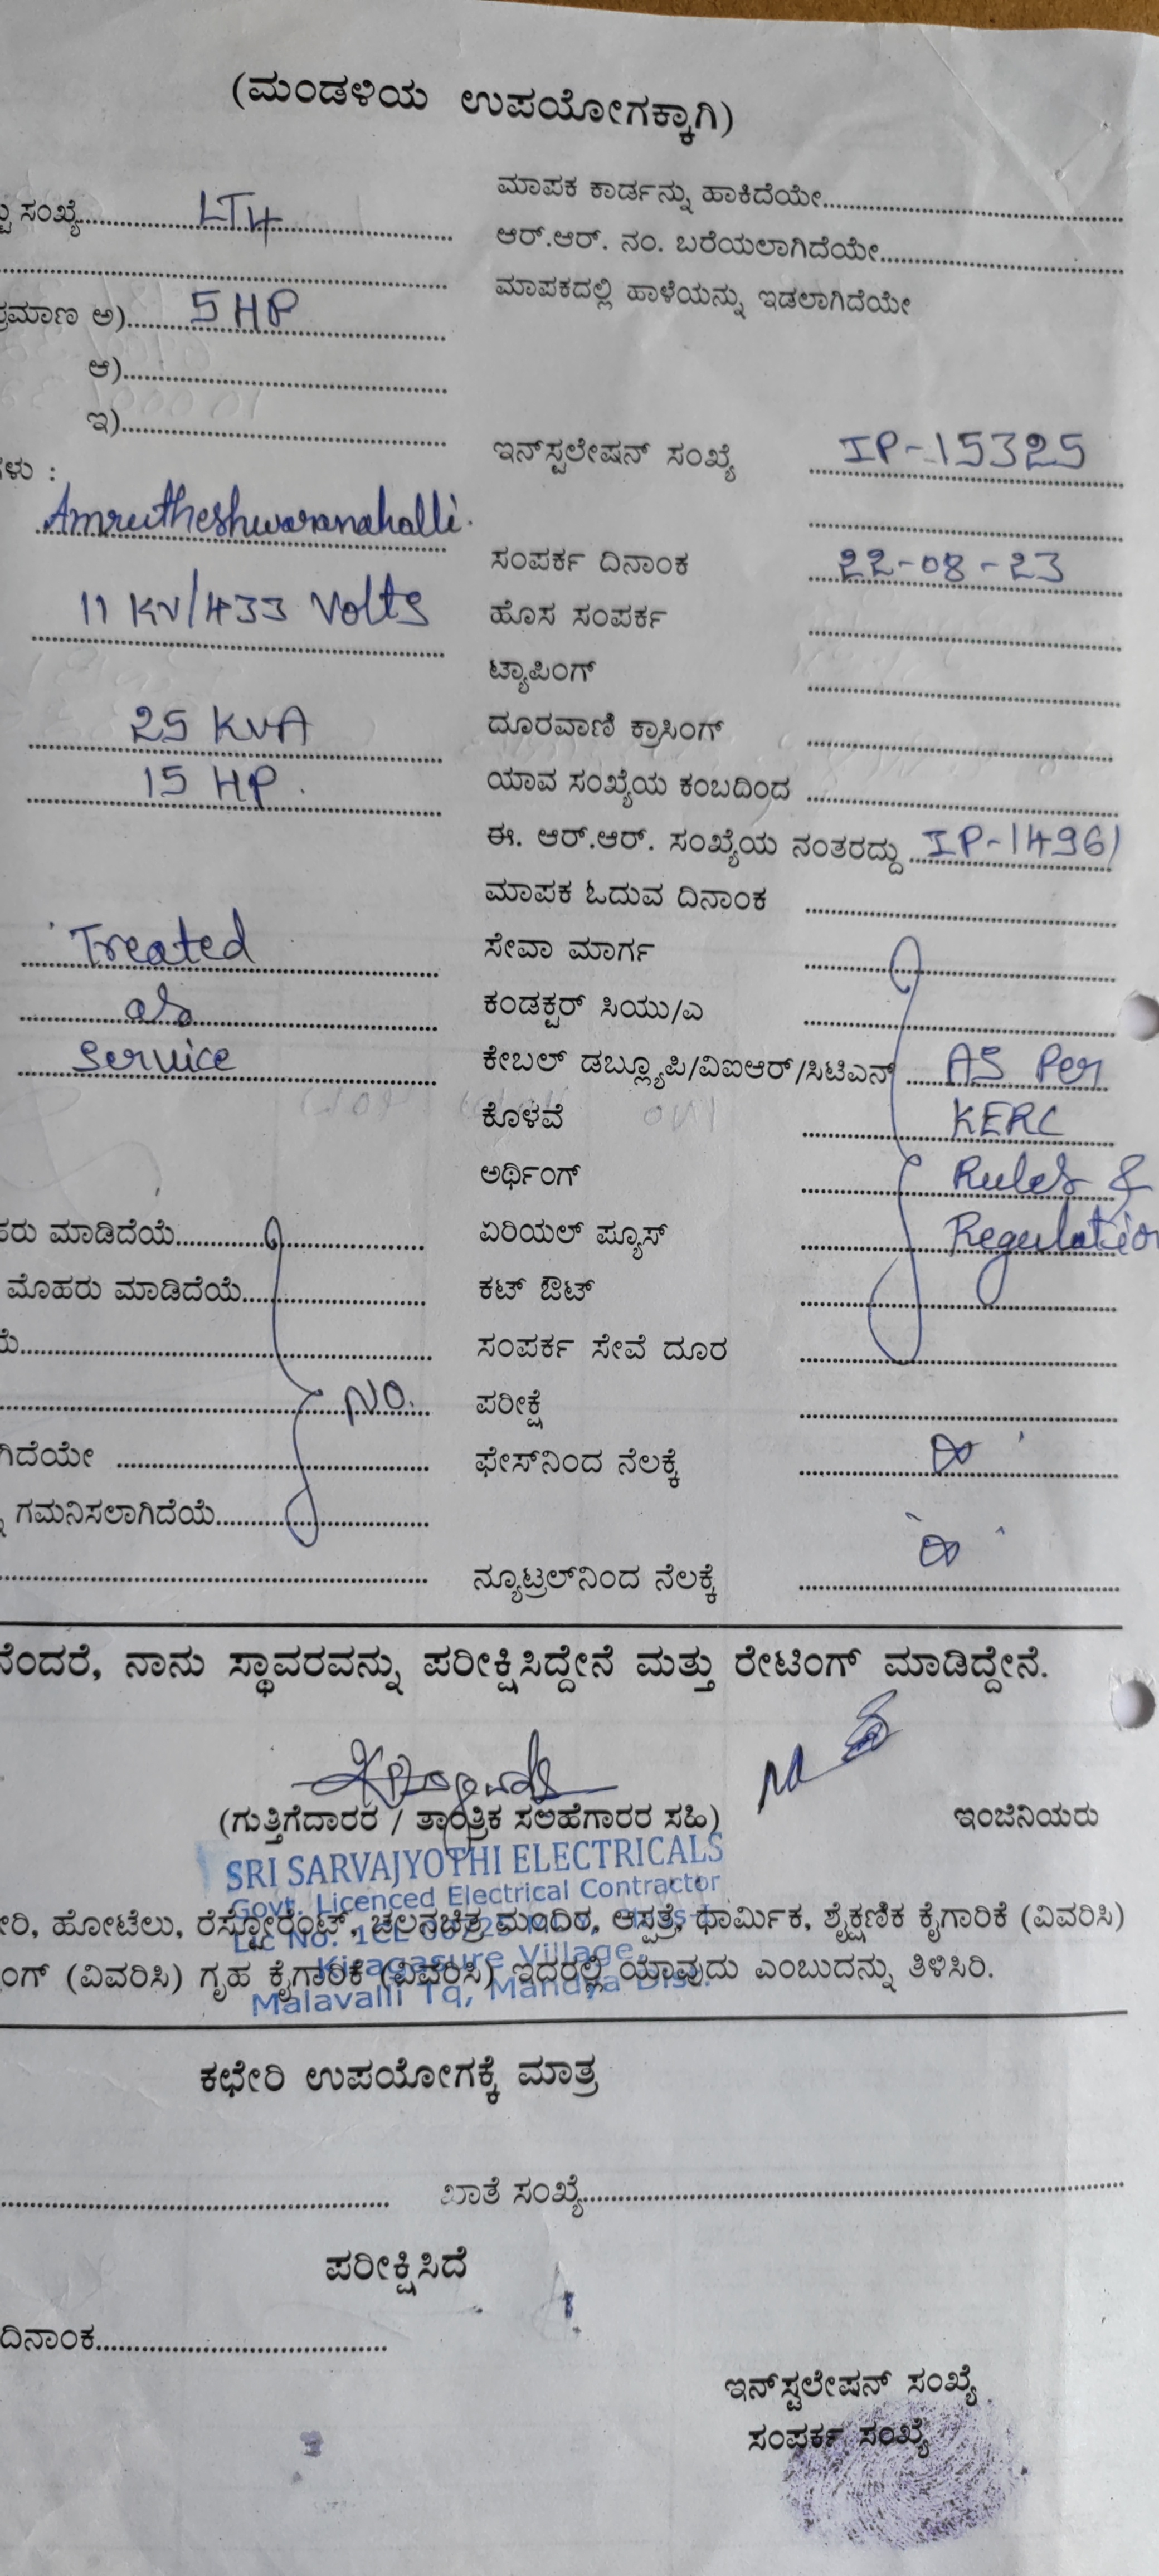 (ಮಂಡಳಿಯ ಉಪಯೋಗಕ್ಕಾಗಿ)
ಸಂಖ್ಯೆ LT4
ಮಾಪಕ ಕಾರ್ಡನ್ನು ಹಾಕಿದೆಯೇ
ಆರ್.ಆರ್. ನಂ. ಬರೆಯಲಾಗಿದೆಯೇ
ಪ್ರಮಾಣ ಅ) 5 HP
ಮಾಪಕದಲ್ಲಿ ಹಾಳೆಯನ್ನು ಇಡಲಾಗಿದೆಯೇ
ಆ)
ಇ)
ಇನ್‌ಸ್ಟಲೇಷನ್ ಸಂಖ್ಯೆ IP-15325
ಗಳು :
Amrutheshwaranahalli.
ಸಂಪರ್ಕ ದಿನಾಂಕ 22-08-23
11 KV/433 Volts
ಹೊಸ ಸಂಪರ್ಕ
ಟ್ಯಾಪಿಂಗ್
25 KVA
ದೂರವಾಣಿ ಕ್ರಾಸಿಂಗ್
15 HP.
ಯಾವ ಸಂಖ್ಯೆಯ ಕಂಬದಿಂದ
ಈ. ಆರ್.ಆರ್. ಸಂಖ್ಯೆಯ ನಂತರದ್ದು IP-14961
ಮಾಪಕ ಓದುವ ದಿನಾಂಕ
Treated
ಸೇವಾ ಮಾರ್ಗ
as
ಕಂಡಕ್ಟರ್ ಸಿಯು/ಎ
Service
ಕೇಬಲ್ ಡಬ್ಲ್ಯೂಪಿ/ವಿಐಆರ್/ಸಿಟಿಎನ್ As Per
ಕೊಳವೆ KERC
ಅರ್ಥಿಂಗ್ Rules &
ಮಾಡಿದೆಯೆ
ಏರಿಯಲ್ ಫ್ಯೂಸ್ Regulation
ಮೊಹರು ಮಾಡಿದೆಯೆ
ಕಟ್ ಔಟ್
ಸಂಪರ್ಕ ಸೇವೆ ದೂರ
NO.
ಪರೀಕ್ಷೆ
ಗಿದೆಯೇ
ಫೇಸ್‌ನಿಂದ ನೆಲಕ್ಕೆ
ಗಮನಿಸಲಾಗಿದೆಯೆ
ನ್ಯೂಟ್ರಲ್‌ನಿಂದ ನೆಲಕ್ಕೆ
ನೆಂದರೆ, ನಾನು ಸ್ಥಾವರವನ್ನು ಪರೀಕ್ಷಿಸಿದ್ದೇನೆ ಮತ್ತು ರೇಟಿಂಗ್ ಮಾಡಿದ್ದೇನೆ.
(ಗುತ್ತಿಗೆದಾರರ / ತಾಂತ್ರಿಕ ಸಲಹೆಗಾರರ ಸಹಿ)
ಇಂಜಿನಿಯರು
SRI SARVAJYOTHI ELECTRICALS
Govt. Licenced Electrical Contractor
ಹೋಟೆಲು, ರೆಸ್ಟೋರೆಂಟ್, ಚಲನಚಿತ್ರ ಮಂದಿರ, ಆಸ್ಪತ್ರೆ, ಧಾರ್ಮಿಕ, ಶೈಕ್ಷಣಿಕ ಕೈಗಾರಿಕೆ (ವಿವರಿಸಿ)
Lic No.
Kiragasure Village
(ವಿವರಿಸಿ) ಗೃಹ ಕೈಗಾರಿಕೆ (ವಿವರಿಸಿ) ಇದರಲ್ಲಿ ಯಾವುದು ಎಂಬುದನ್ನು ತಿಳಿಸಿರಿ.
Malavalli Tq, Mandya Dist.
ಕಛೇರಿ ಉಪಯೋಗಕ್ಕೆ ಮಾತ್ರ
ಖಾತೆ ಸಂಖ್ಯೆ
ಪರೀಕ್ಷಿಸಿದೆ
ದಿನಾಂಕ
ಇನ್‌ಸ್ಟಲೇಷನ್ ಸಂಖ್ಯೆ
ಸಂಪರ್ಕ ಸಂಖ್ಯೆ